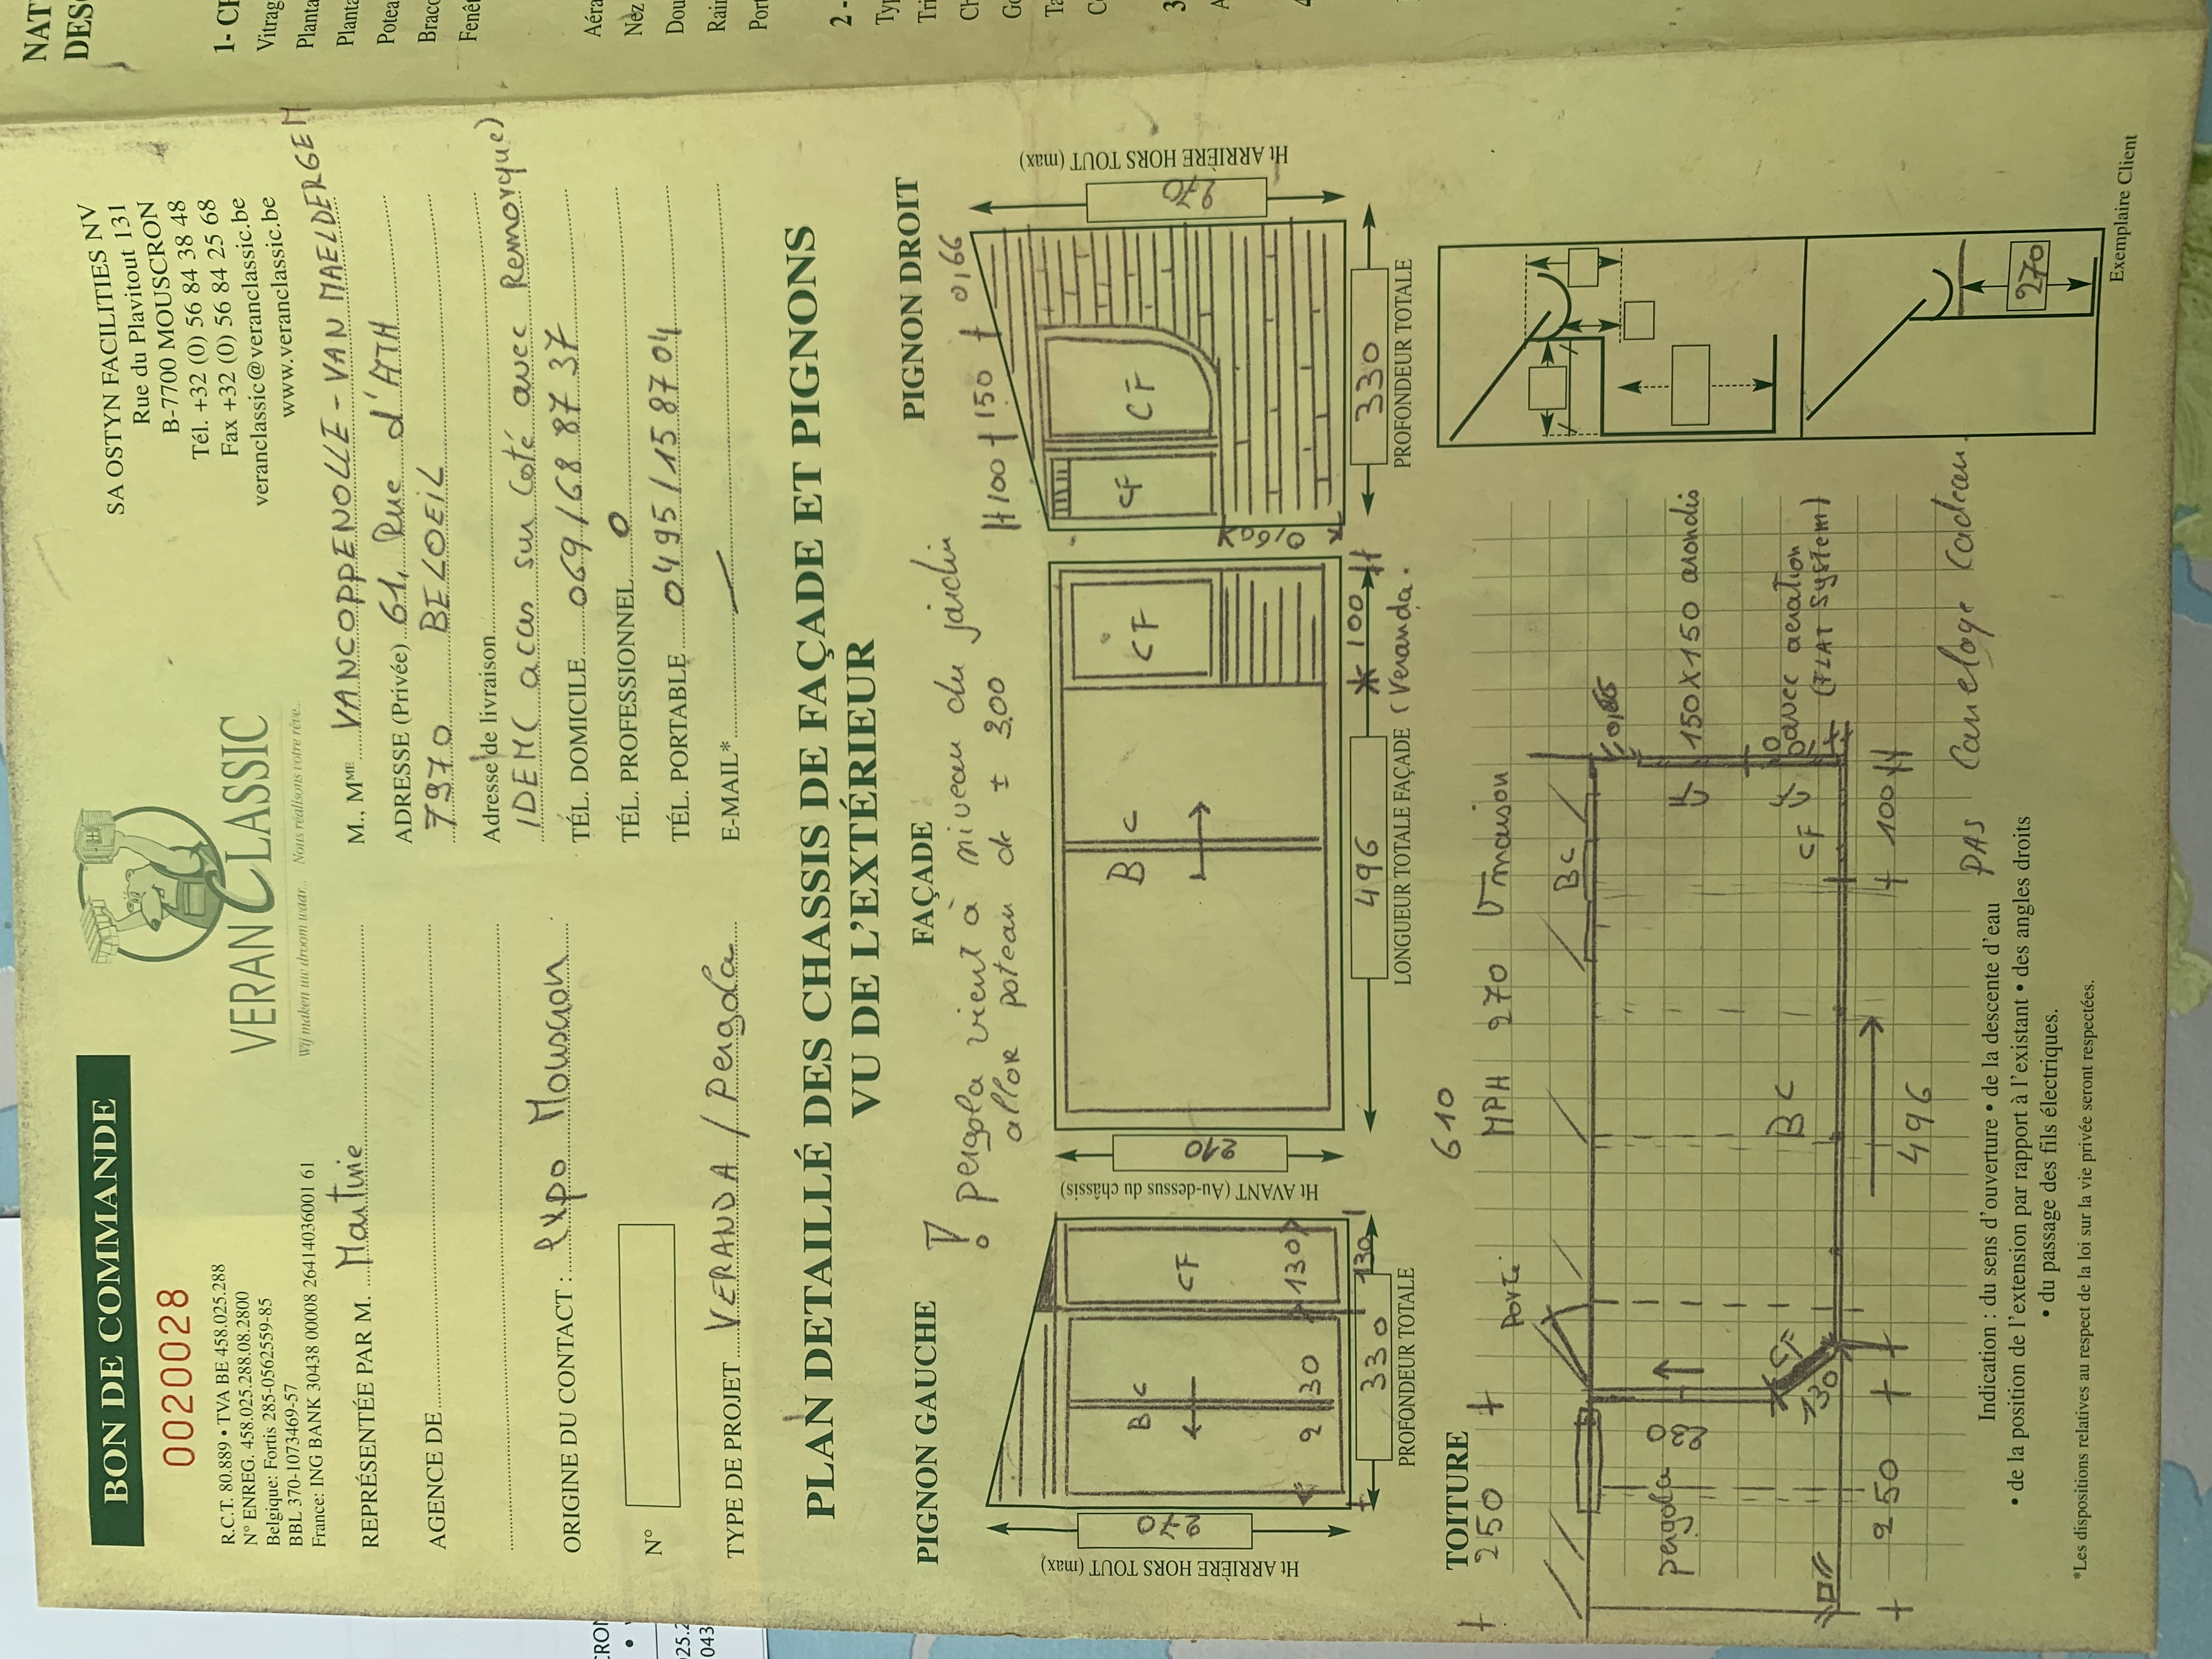 BON DE COMMANDE
0020028
R.C.T. 80.889 • TVA BE 458.025.288
N° ENREG. 458.025.288.08.2800
Belgique: Fortis 285-0562559-85
BBL 370-1073469-57
France: ING BANK 30438 00008 26414036001 61
REPRÉSENTÉE PAR M. Martine
AGENCE DE
ORIGINE DU CONTACT : expo Mouscron
N°
TYPE DE PROJET VERANDA / Pergola
VERANCLASSIC
Wij maken uw droom waar... Nous réalisons votre rêve...
SA OSTYN FACILITIES NV
Rue du Plavitout 131
B-7700 MOUSCRON
Tél. +32 (0) 56 84 38 48
Fax +32 (0) 56 84 25 68
veranclassic@veranclassic.be
www.veranclassic.be
M., MME VANCOPPENOLLE - VAN MAELDERGEM
ADRESSE (Privée) 61, Rue d'ATH
7970 BELOEIL
Adresse de livraison
IDEM ( acces sur Coté avec Remorque)
TÉL. DOMICILE 069/68 87 37
TÉL. PROFESSIONNEL 0
TÉL. PORTABLE 0495/15 87 04
E-MAIL*
PLAN DETAILLÉ DES CHASSIS DE FAÇADE ET PIGNONS
VU DE L'EXTÉRIEUR
PIGNON GAUCHE
FAÇADE
PIGNON DROIT
! pergola vient à niveau du jardin
allor poteau de ± 300
100 150 0,66
Ht ARRIÈRE HORS TOUT (max)
270
BC
CF
230
130
330
130
PROFONDEUR TOTALE
Ht AVANT (Au-dessus du châssis)
210
BC
CF
496
100
LONGUEUR TOTALE FAÇADE (Veranda.
CF
CF
0,60
330
PROFONDEUR TOTALE
270
Ht ARRIÈRE HORS TOUT (max)
TOITURE
610
250
MPH 270 V maison
Porte
BC
pergola
230
150x150 arrondis
avec aeration
(FLAT System)
CF
130
BC
CF
250
496
100
PAS Canelage Cadeau.
270
Indication : du sens d'ouverture • de la descente d'eau
• de la position de l'extension par rapport à l'existant • des angles droits
• du passage des fils électriques.
*Les dispositions relatives au respect de la loi sur la vie privée seront respectées.
Exemplaire Client
NAT
1- CH
Vitrag
Planta
Planta
Potea
Fenê
Aéra
Nez
Dou
Port
2 -